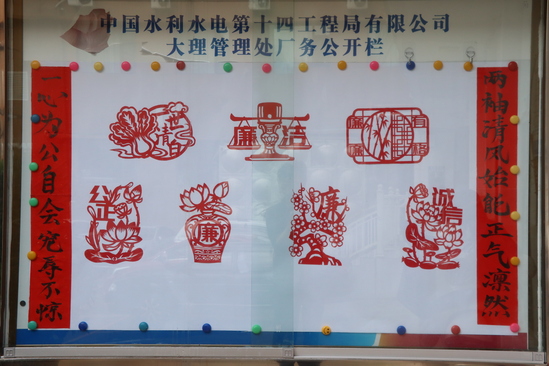 中国水利水电第十四工程局有限公司
大理管理处厂务公开栏
两袖清风始能正气凛然
一心为公自会宠辱不惊
清白
廉洁
公正
廉
廉
诚信